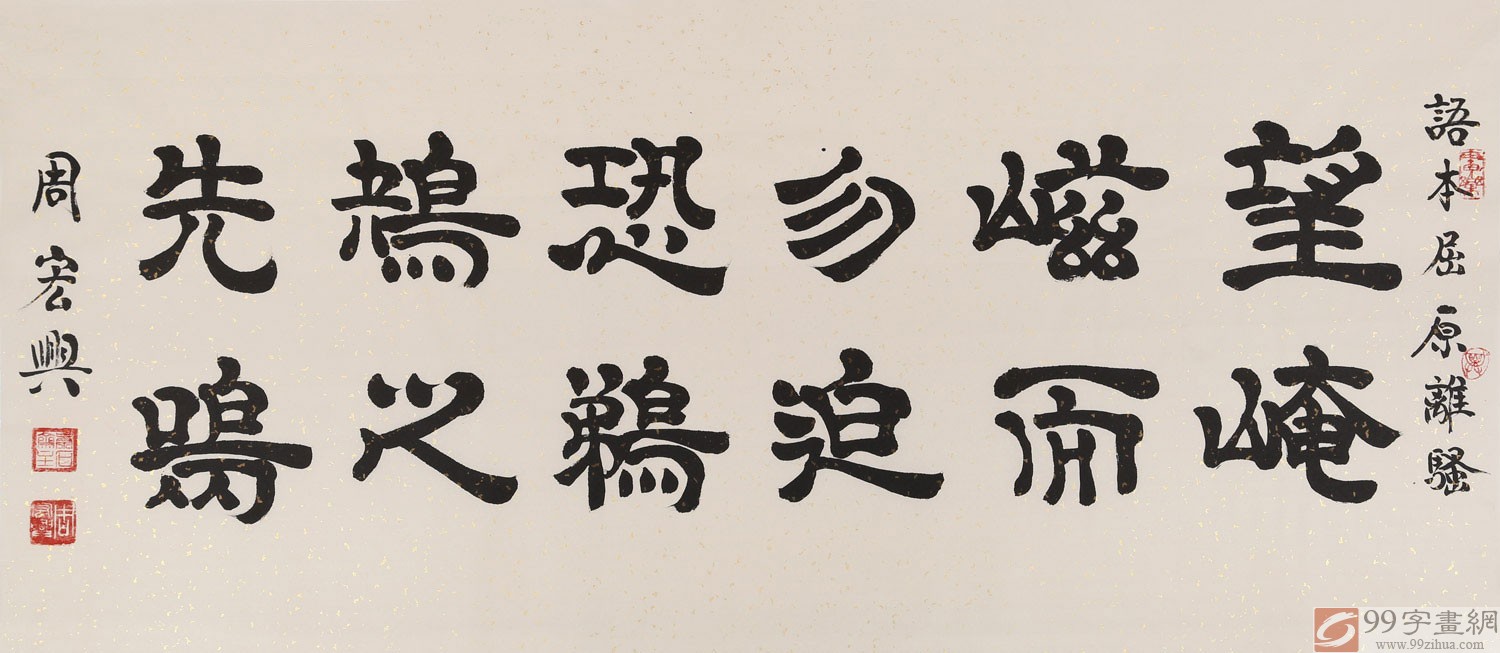 語本屈原離騷
望崦
嵫而
勿迫
恐鵜
鴂之
先鳴
周宏興
99字畫網
www.99zihua.com